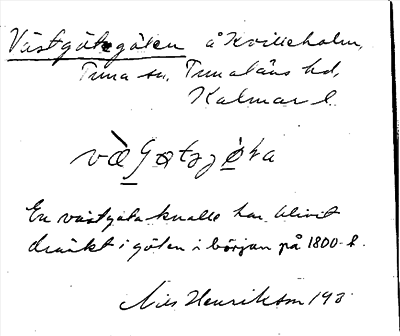 Västgötegölen å Kvilleholm,
Tuna sn, Tunaläns hd,
Kalmar l.
En västgöta knalle har blivit
dränkt i gölen i början på 1800-t.
Nils Henrikson